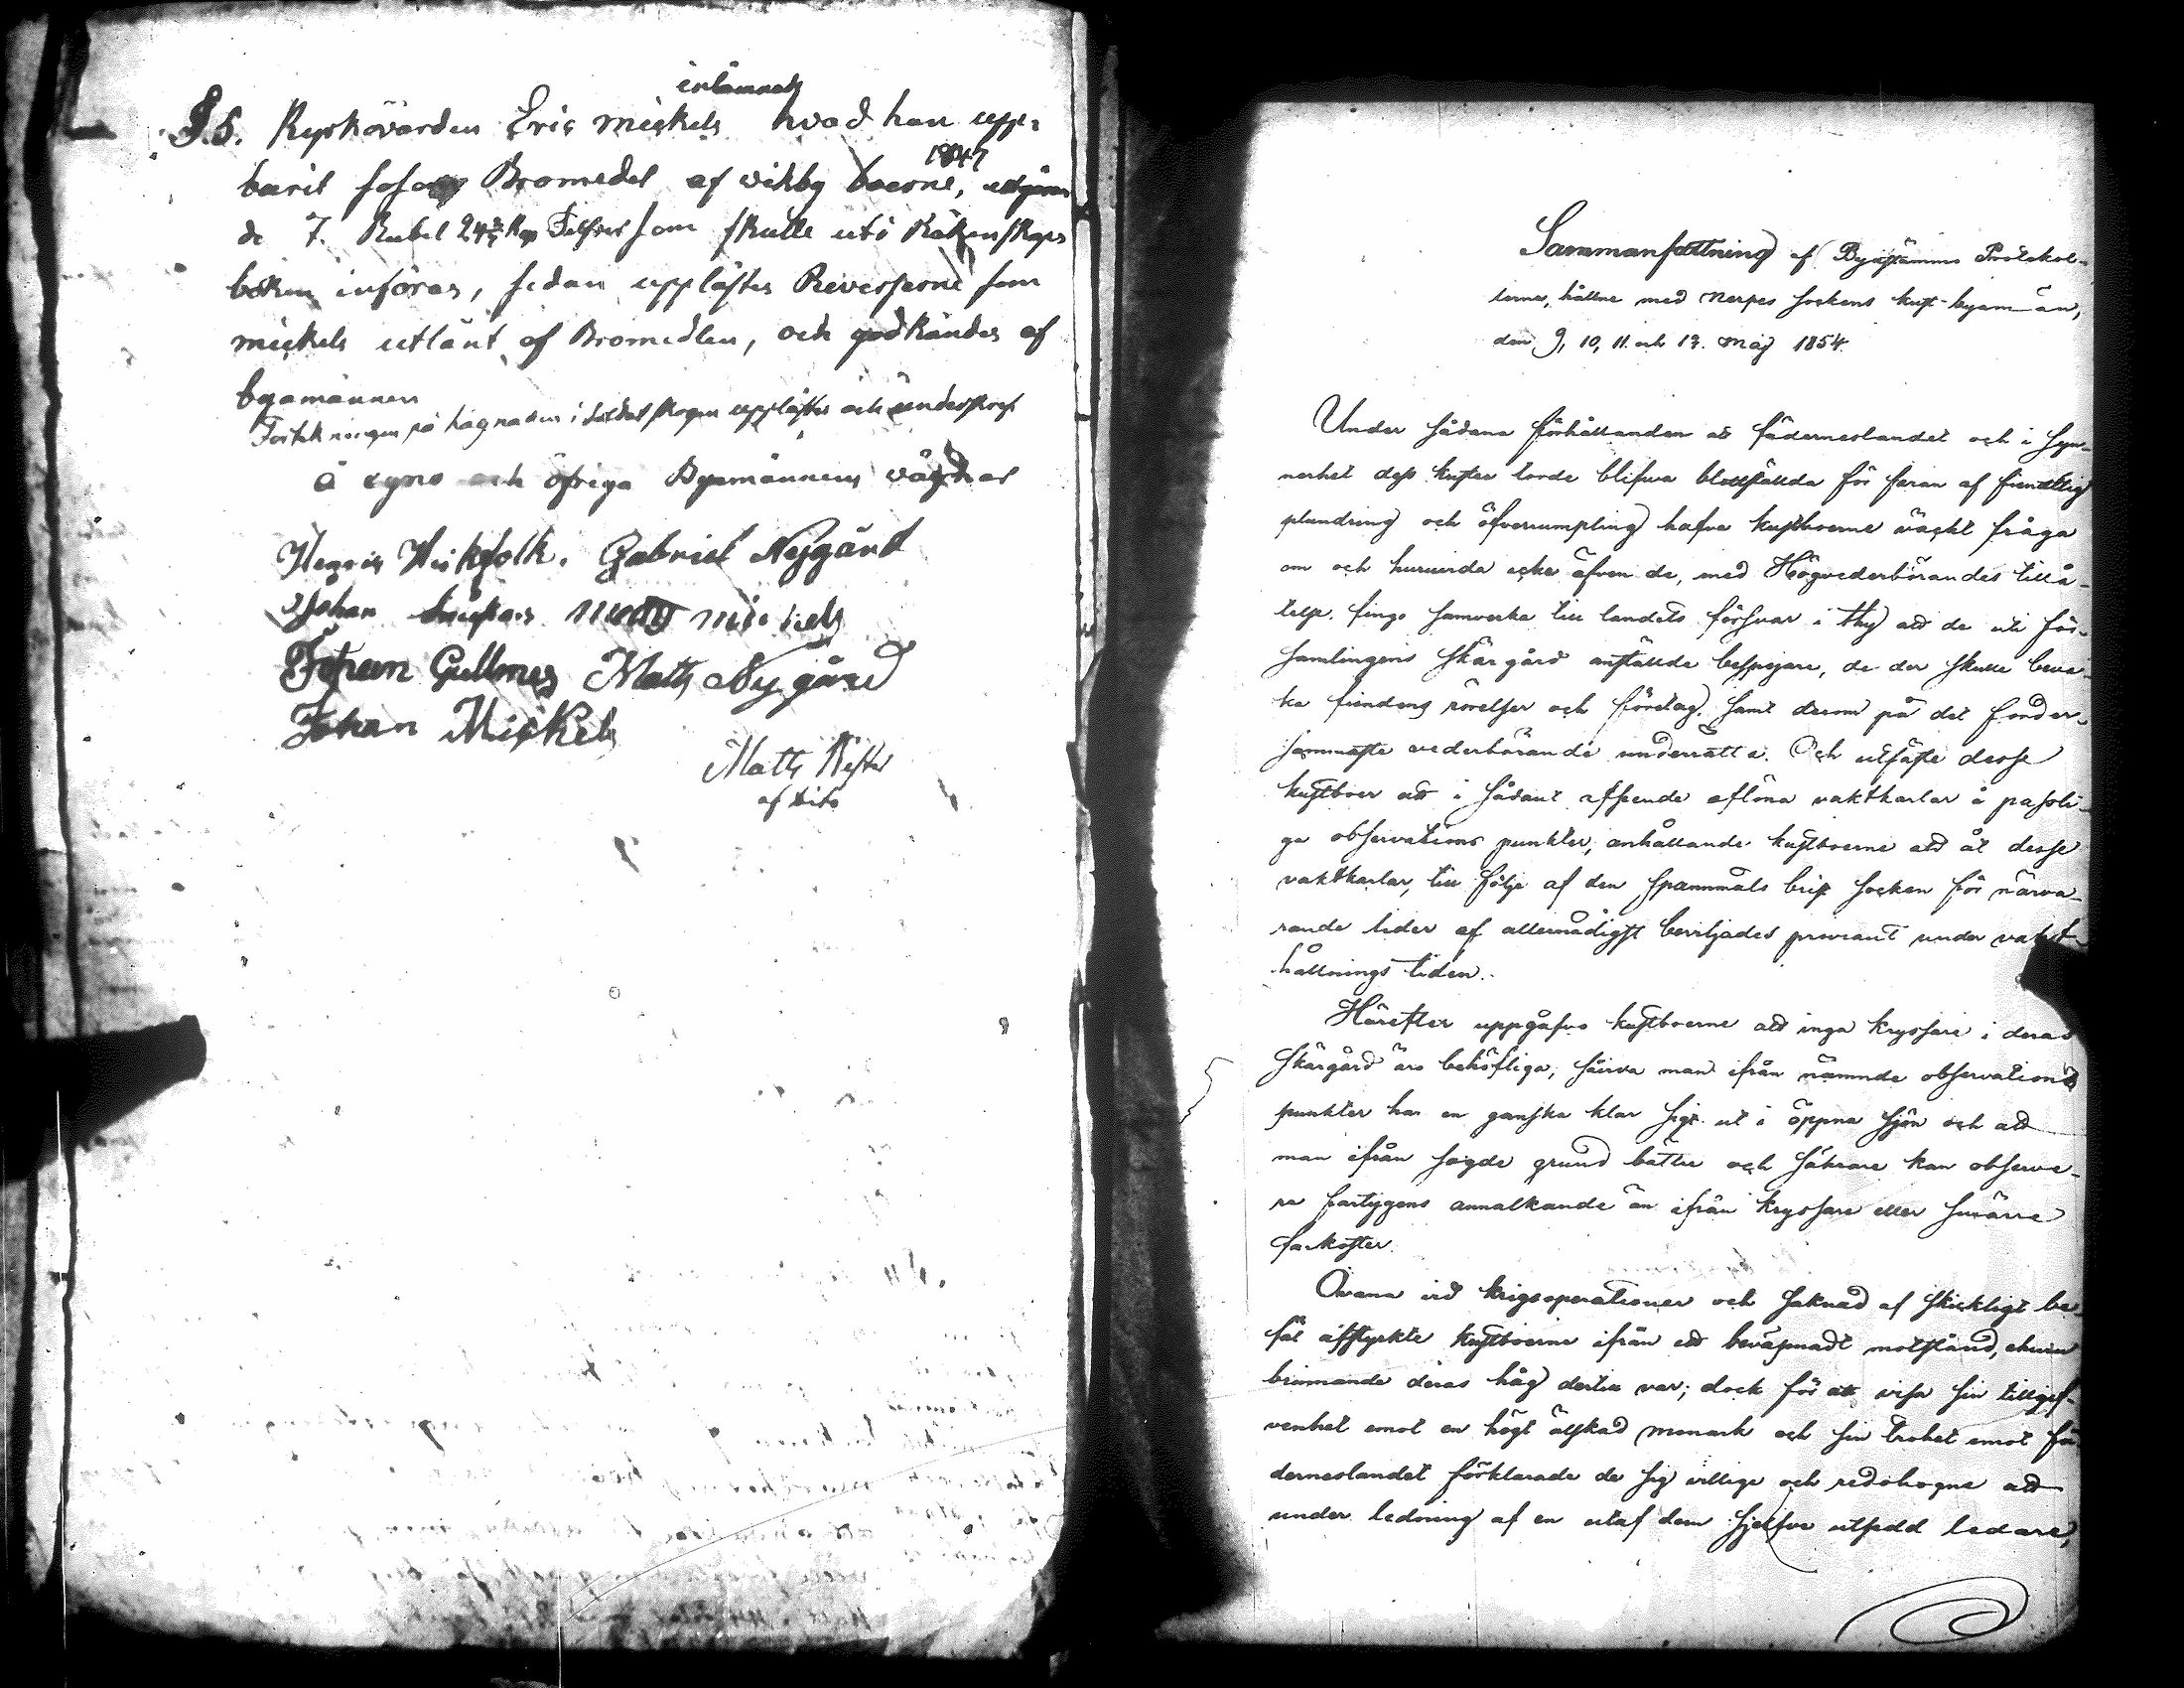 inlämnat
§.5. Kyrkovärden Eric Mickels hvad han upp-
1847
burit såsom Bromedel af vikby boerne, utgöran
de 7. Rubel 24 3/7 Kop Silfver som skulle uti Räkenskaps
boken införas, sedan upplästes Reverserne som
Mickels utlånt af Bromedlen, och godkändes af
byamännen
Förtekningen på hägnaden i Soldat skogen upplästes och underskref
å egne och öfriga Byamännens vägnar
Henric Gabriel Nygård
Johan Mickels
Johan Gullmes Matts Nygård
Johan Mickels
Matts
af dito
Sammanfattning af Byastämmo Protokol-
lerne, hållne med Nerpes Sockens kust-byamän,
den 9, 10, 11. och 12. Maj 1854.
Under sådana förhållanden att fäderneslandet och i syn-
nerhet dess kuster torde blifva blottställda för faran af fiendtlig
plundring och öfverrumpling hafva kustboerne väckt fråga
om och huruvida icke äfven de, med Högvederbörandes tillå-
telse, finge samverka till landets försvar i thy att de uti för-
samlingens Skärgård anställde bespejare, de der skulle beva-
ka fiendens rörelser och företag. Samt derom på det fonder-
sammaste vederbörande underrätta. Och utfäste desse
kustboer att i sådant afseende aflöna vaktkarlar å passli-
ga observations punkter, anhållande kustboerne att åt desse
vaktkarlar, till följe af den spannmåls brist Socken för närva-
rande lider af allernådigst beviljades proviant under vakt-
hållnings tiden.
Härefter uppgåfvo kustboerne att inga kryssare i deras
Skärgård äro behöfliga, såvida man ifrån nämnde observations
punkter har en ganska klar sigt ut i öppna sjön och att
man ifrån sagde grund bättre och säkrare kan observe-
ra fartygens annalkande än ifrån kryssare eller smärre
farkoster.
Ovana vid krigsoperationer och saknad af skickligt be-
fäl afstyrkte kustboerne ifrån ett beväpnadt motstånd, ehuru
brinnande deras håg dertill var; dock för att visa sin tillgif-
venhet emot en högt älskad Monark och sin trohet emot fä-
derneslandet förklarade de sig villige och redobogne att
under ledning af en utaf dem sjelfve utsedd ledare,